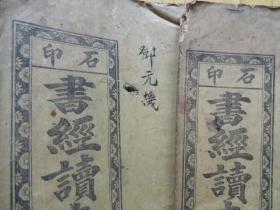 石印
書經讀
元機
石印
書經讀